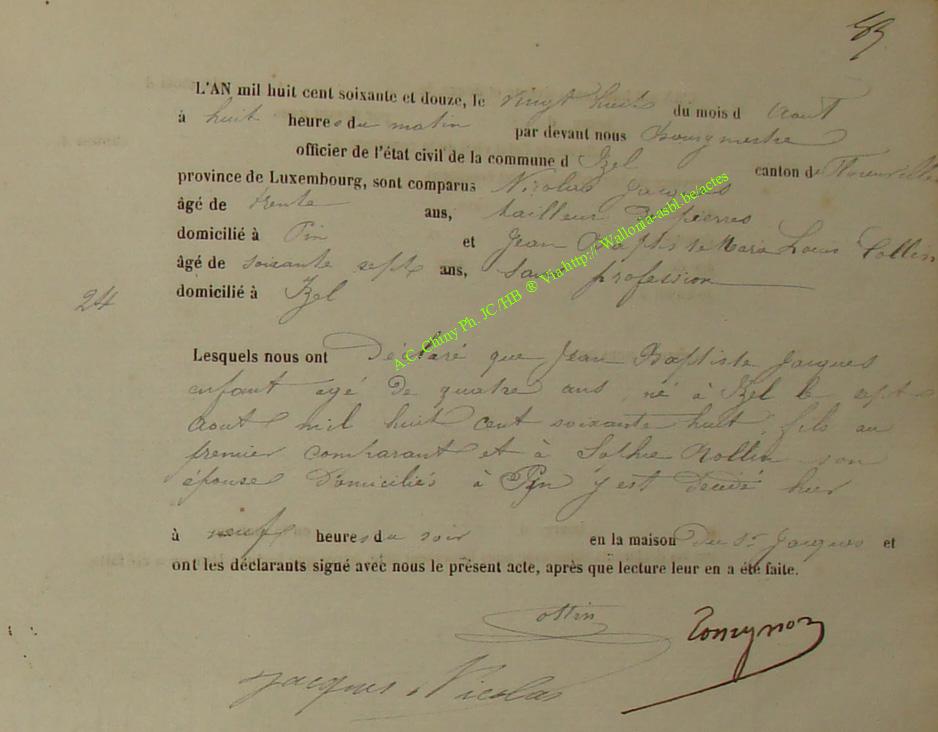 L'AN mil huit cent soixante et douze, le vingt huit du mois d Aout
à huit heures du matin par devant nous Bourgmestre
officier de l'état civil de la commune d Izel canton de Florenville
province de Luxembourg, sont comparus Nicolas Jacques
âgé de trente ans, tailleur de pierres
domicilié à Pin et Jean Baptiste Marie Louis Collin
âgé de soixante sept ans, sans profession
24
domicilié à Izel
Lesquels nous ont Déclaré que Jean Baptiste Jacques
enfant agé de quatre ans, né à Izel le sept
Aout mil huit cent soixante huit, fils au
premier comparant et à Sophie son
épouse Domiciliés à Pin y est décédé hier
à neuf heures du soir en la maison du Sr Jacques et
ont les déclarants signé avec nous le présent acte, après que lecture leur en a été faite.
Jacques Nicolas
A.C. Chiny Ph. JC/HB ® Via http://Wallonia-asbl.be/actes